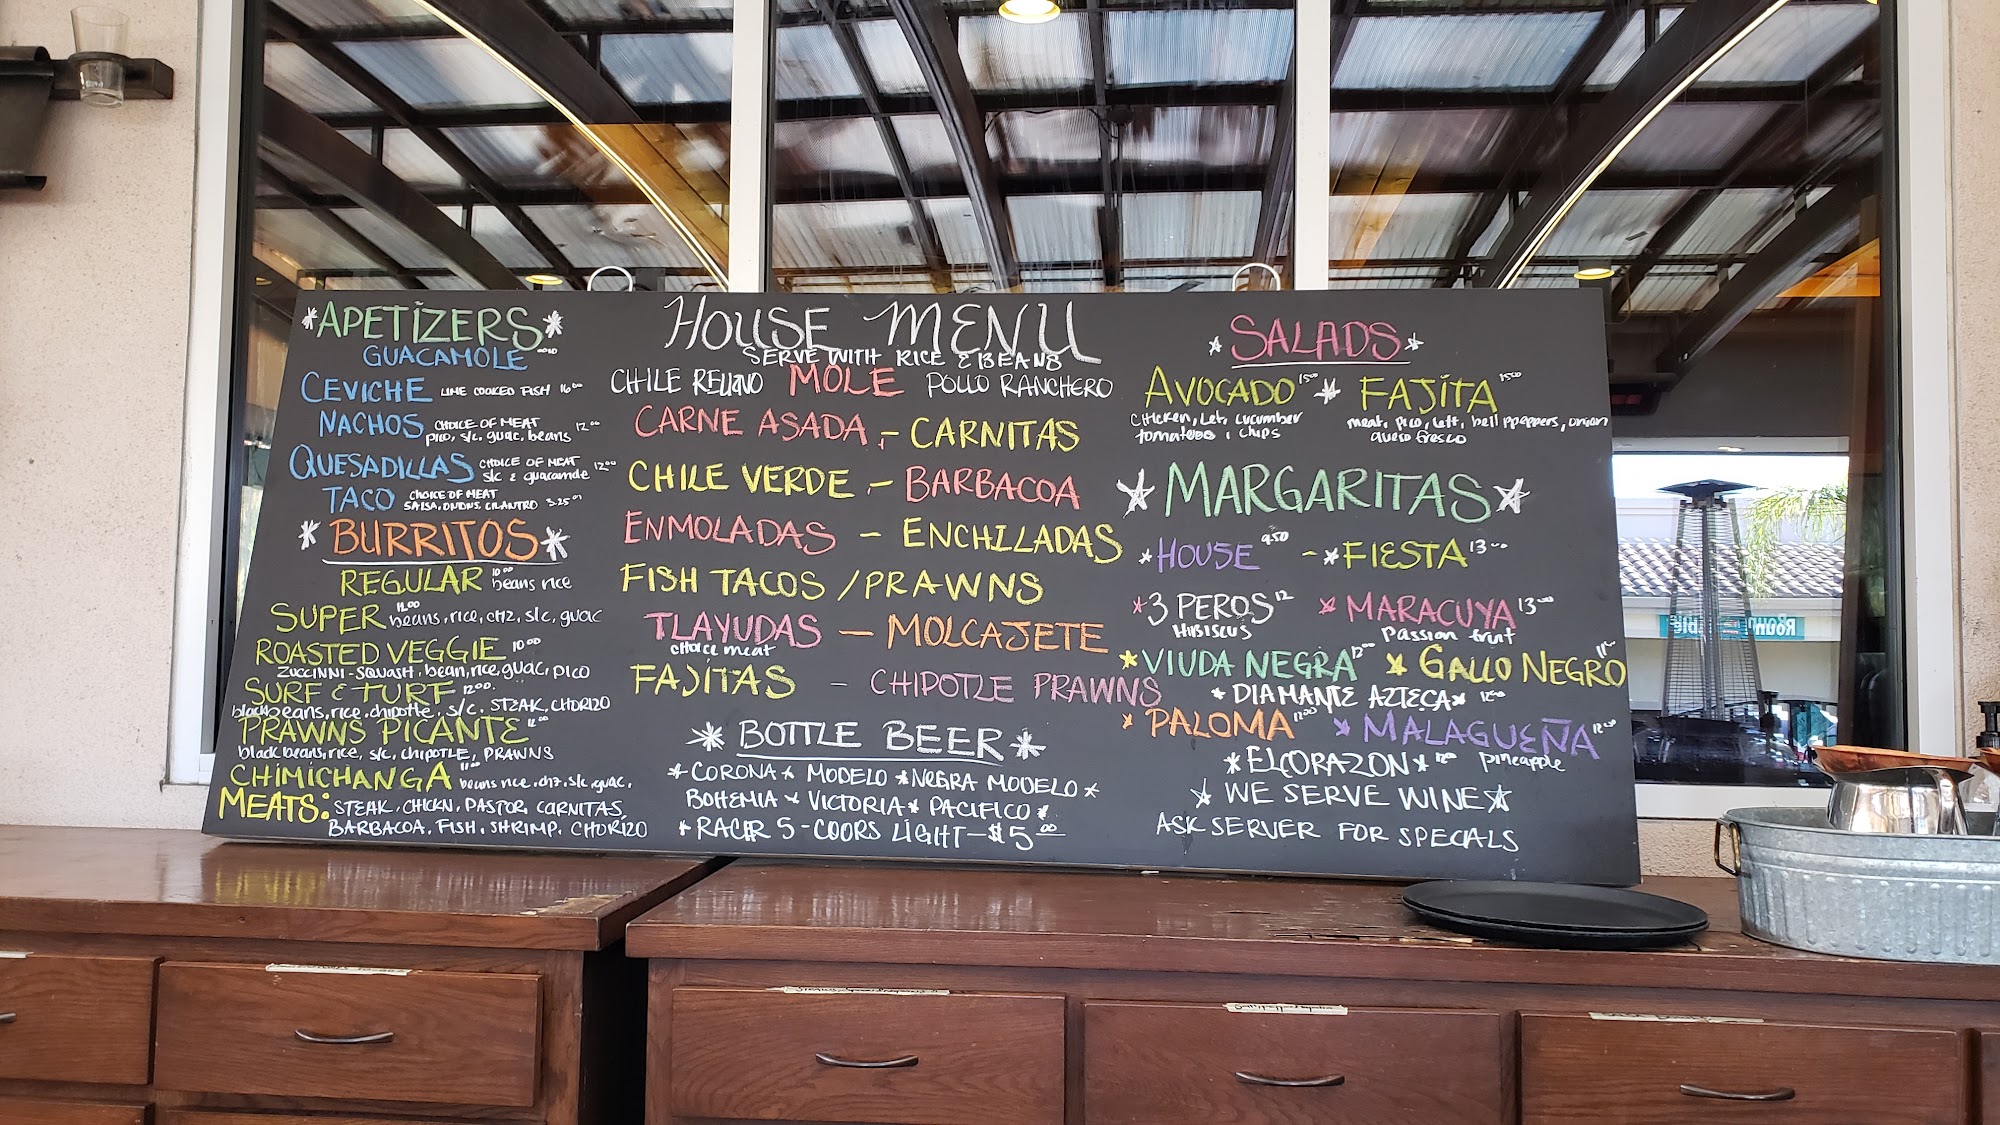 *APETIZERS*
GUACAMOLE
CEVICHE LIME COOKED FISH 16.00
NACHOS CHOICE OF MEAT
pico, s/c, guac, beans 12.00
QUESADILLAS CHOICE OF MEAT
s/c & guacamole 12.00
TACO CHOICE OF MEAT
SALSA, ONIONS, CILANTRO 3.25
*BURRITOS*
REGULAR 10.00 beans rice
SUPER 11.00 beans, rice, chz, s/c, guac
ROASTED VEGGIE 10.00
ZUCCINNI-SQUASH, bean, rice, guac, pico
SURF & TURF 12.00
black beans, rice, chipotle, s/c, STEAK, CHORIZO
PRAWNS PICANTE 12.00
black beans, rice, s/c, chipotle, PRAWNS
CHIMICHANGA 11.00 beans rice, chz, s/c, guac,
MEATS: STEAK, CHICKN, PASTOR, CARNITAS,
BARBACOA, FISH, SHRIMP, CHORIZO
HOUSE MENU
SERVE WITH RICE & BEANS
CHILE RELLENO MOLE POLLO RANCHERO
CARNE ASADA - CARNITAS
CHILE VERDE - BARBACOA
ENMOLADAS - ENCHILADAS
FISH TACOS / PRAWNS
TLAYUDAS - MOLCAJETE
choice meat
FAJITAS - CHIPOTLE PRAWNS
*BOTTLE BEER*
*CORONA* MODELO *NEGRA MODELO*
BOHEMIA * VICTORIA * PACIFICO *
*RACER 5 - COORS LIGHT - $5.00
*SALADS*
AVOCADO 15.00 * FAJITA 15.00
chicken, Let, cucumber
tomatoes, chips
meat, pico, lett, bell ppeppers, onion
queso fresco
*MARGARITAS*
*HOUSE 9.50 - *FIESTA 13.00
*3 PEROS 12 * MARACUYA 13.00
HIBISCUS
Passion fruit
*VIUDA NEGRA 12.00 * GALLO NEGRO
*DIAMANTE AZTECA* 12.00
*PALOMA 12.00 * MALAGUEÑA 12.00
pineapple
*EL CORAZON* 12.00
* WE SERVE WINE *
ASK SERVER FOR SPECALS